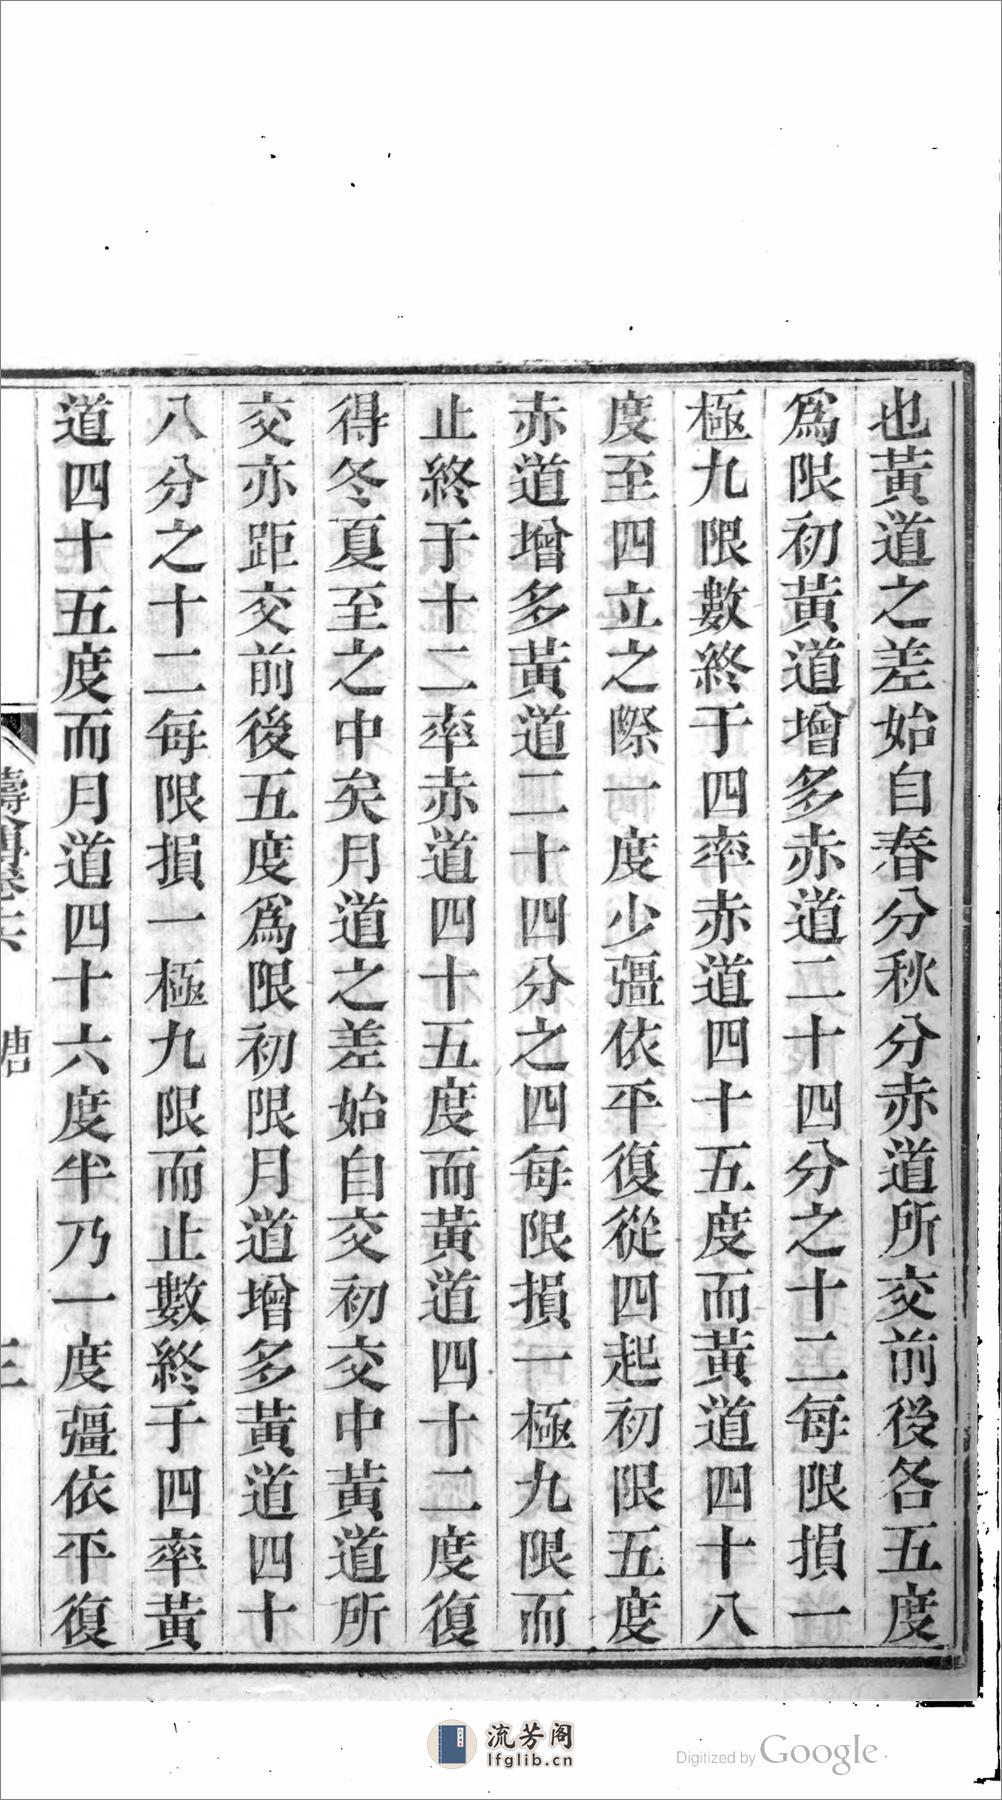 也黃道之差始自春分秋分赤道所交前後各五度
爲限初黃道增多赤道二十四分之十二每限損一
極九限數終于四率赤道四十五度而黃道四十八
度至四立之際一度少彊依平復從四起初限五度
赤道增多黃道二十四分之四每限損一極九限而
止終于十二率赤道四十五度而黃道四十二度復
得冬夏至之中矣月道之差始自交初交中黃道所
交亦距交前後五度爲限初限月道增多黃道四十
八分之十二每限損一極九限而止數終于四率黃
道四十五度而月道四十六度半乃一度彊依平復
流芳阁
lfglib.cn
Digitized by Google